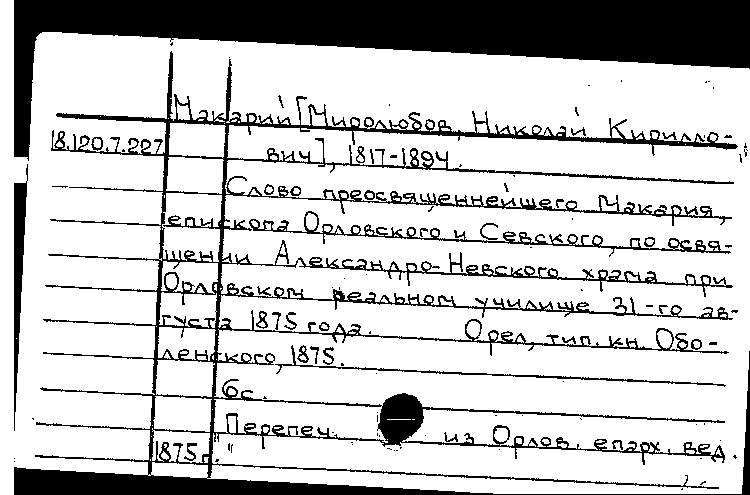 Макарий [Миролюбов, Николай Кирилло-
18.120.7.227
вич], 1817-1894.
Слово преосвященнейшего Макария,
епископа Орловского и Севского, по освя-
щении Александро-Невского храма при
Орловском реальном училище 31-го ав-
густа 1875 года. Орел, тип. кн. Обо-
ленского, 1875.
6с.
"Перепеч. из Орлов. епарх. вед.
1875 г."